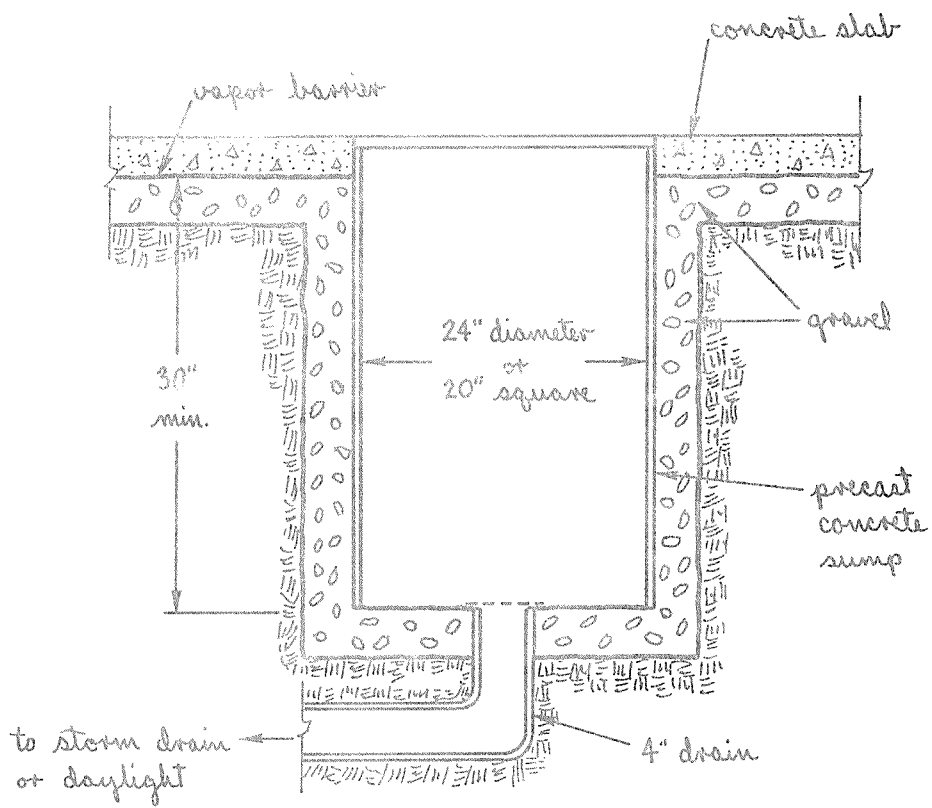 concrete slab
vapor barrier
24" diameter
or
20" square
gravel
30"
min.
precast
concrete
sump
to storm drain
or daylight
4" drain